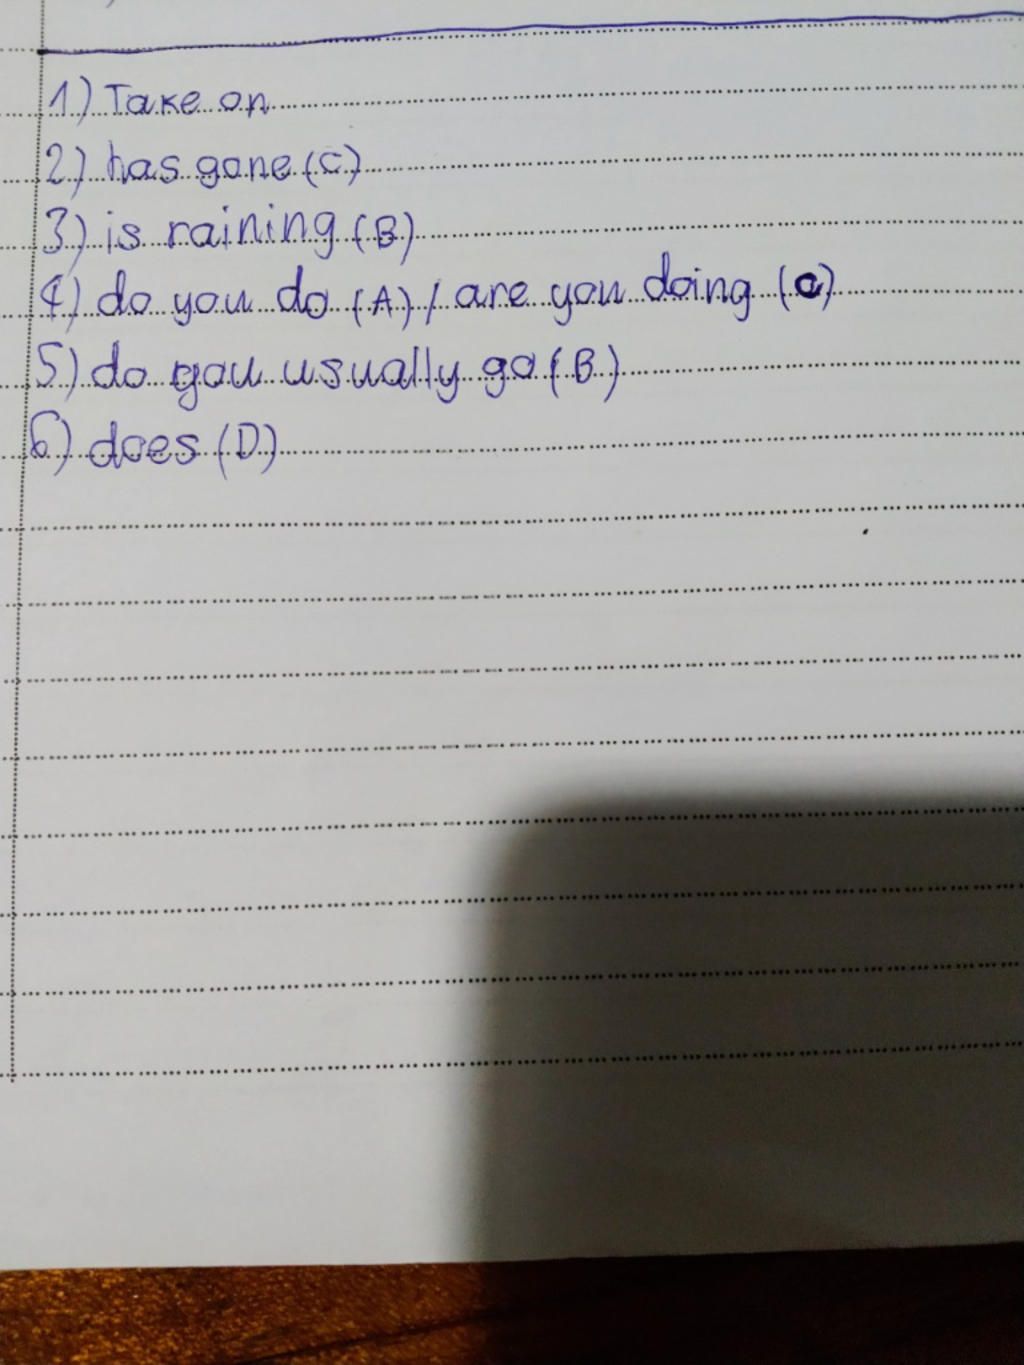 1) Take on
2) has gone (C)
3) is raining (B)
4) do you do (A) / are you doing (C)
5) do you usually go (B)
6) does (D)